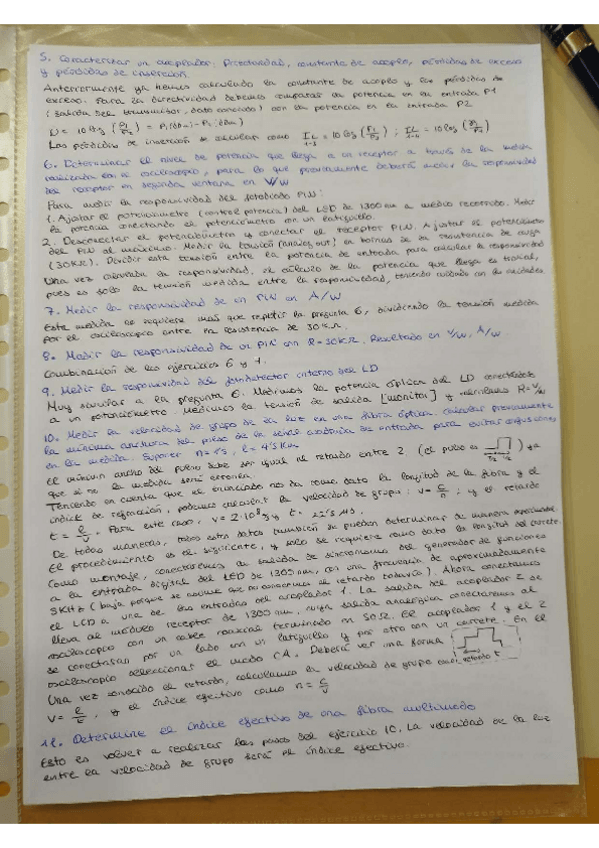 5. Caracterizar un acoplador: Directividad, constante de acoplo, pérdidas de exceso
y pérdidas de inserción.
Anteriormente ya hemos calculado la constante de acoplo y las pérdidas de
exceso. Para la directividad debemos comparar la potencia en su entrada P1
(salida del transmisor, dato conocido) con la potencia en la entrada P2
Las pérdidas de inserción se calculan como
6. Determinar el nivel de potencia que llega a un receptor a través de la medida
realizada en el osciloscopio, para lo que previamente deberá medir la responsividad
del receptor en segunda ventana en V/W
Para medir la responsividad del fotodiodo PIN:
1. Ajustar el potenciómetro (control potencia) del LED de 1300 nm a medio recorrido. Medir
la potencia conectando el potenciómetro con un latiguillo.
2. Desconectar el potenciómetro y conectar el receptor PIN. Ajustar el potenciómetro
del PIN al máximo. Medir la tensión (analog out) en bornas de la resistencia de carga
(30KΩ). Dividir esta tensión entre la potencia de entrada para calcular la responsividad
Una vez calculada la responsividad, el cálculo de la potencia que llega es trivial,
pues es solo la tensión medida entre la responsividad, teniendo cuidado con las unidades
7. Medir la responsividad de un PIN en A/W
Esta medida no requiere más que repetir la pregunta 6, dividiendo la tensión medida
por el osciloscopio entre la resistencia de 30KΩ.
8. Medir la responsividad de un PIN con R=30KΩ. Resultado en V/W, A/W
Combinación de los ejercicios 6 y 7.
9. Medir la responsividad del fotodetector interno del LD
Muy similar a la pregunta 6. Medimos la potencia óptica del LD conectándolo
a un potenciómetro. Medimos la tensión de salida [monitor] y calculamos R=V/W
10. Medir la velocidad de grupo de la luz en una fibra óptica. Calcular previamente
la mínima anchura del pulso de la señal cuadrada de entrada para evitar confusiones
en la medida. Suponer n=1'5, l=4'5Km
El mínimo ancho del pulso debe ser igual al retardo entre 2 (el pulso es
que si no la medida será errónea.
Teniendo en cuenta que el enunciado nos da como dato la longitud de la fibra y el
índice de refracción, podemos calcular la velocidad de grupo: v=c/n; y el retardo
t = l/v. Para este caso, v=2·10⁸ y t = 22'5 μs.
De todas maneras, todos estos datos también se pueden determinar de manera experimental.
El procedimiento es el siguiente, y solo se requiere como dato la longitud del carrete.
Como montaje, conectaremos la salida de sincronismo del generador de funciones
a la entrada digital del LED de 1300 nm, con una frecuencia de aproximadamente
5KHz (baja porque se asume que no conocemos el retardo todavía). Ahora conectamos
el LCD a una de las entradas del acoplador 1. La salida del acoplador 2 se
lleva al módulo receptor de 1300 nm, cuya salida analógica conectaremos al
osciloscopio con un cable coaxial terminado en 50Ω. El acoplador 1 y el 2
se conectarán por un lado con un latiguillo y por otro con un carrete. En el
osciloscopio seleccionar el modo CA. Deberá ver una forma
Una vez conocido el retardo, calculamos la velocidad de grupo como retardo t
v = l/t, y el índice efectivo como n = c/v
11. Determine el índice efectivo de una fibra multimodo
Esto es volver a realizar los pasos del ejercicio 10. La velocidad de la luz
entre la velocidad de grupo será el índice efectivo.